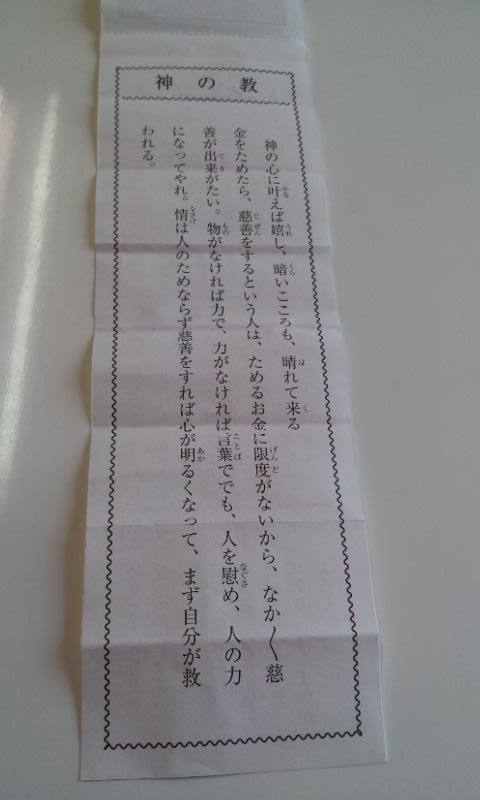 神の教
神の心に叶えば嬉し、暗いこころも、晴れて来る
金をためたら、慈善をするという人は、ためるお金に限度がないから、なか〳〵慈
善が出来がたい。物がなければ力で、力がなければ言葉ででも、人を慰め、人の力
になってやれ。情は人のためならず慈善をすれば心が明るくなって、まず自分が救
われる。